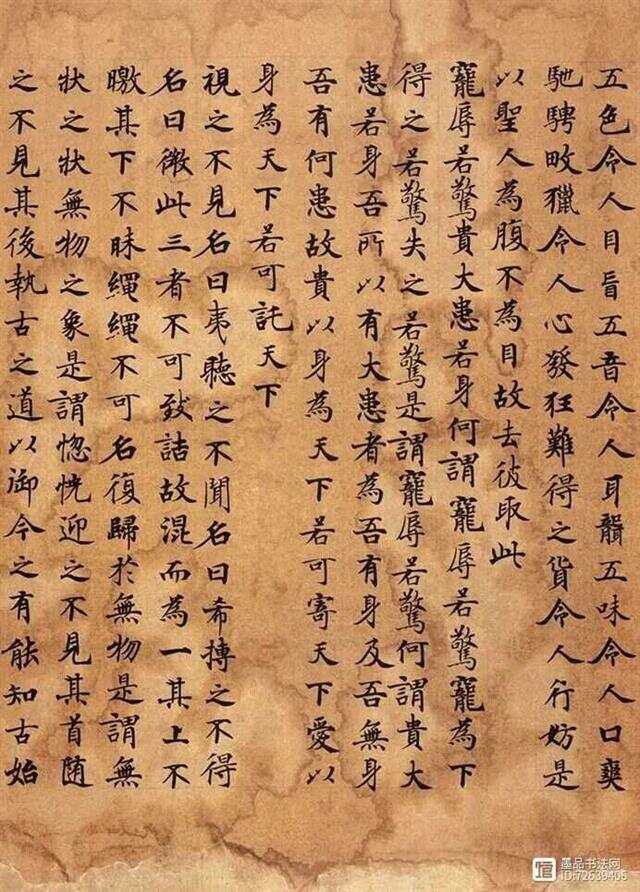 五色令人目盲五音令人耳聾五味令人口爽
馳騁畋獵令人心發狂難得之貨令人行妨是
以聖人為腹不為目故去彼取此
寵辱若驚貴大患若身何謂寵辱若驚寵為下
得之若驚失之若驚是謂寵辱若驚何謂貴大
患若身吾所以有大患者為吾有身及吾無身
吾有何患故貴以身為天下若可寄天下愛以
身為天下若可託天下
視之不見名曰夷聽之不聞名曰希搏之不得
名曰微此三者不可致詰故混而為一其上不
曒其下不昧繩繩不可名復歸於無物是謂無
狀之狀無物之象是謂惚恍迎之不見其首随
之不見其後執古之道以御今之有能知古始
墨品书法网
ID:72639406